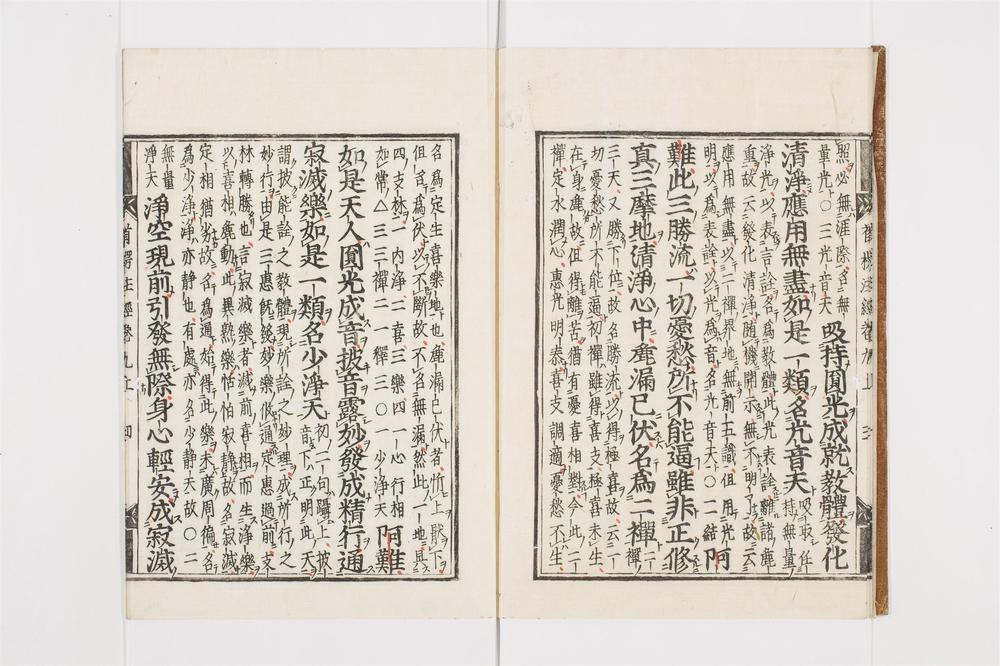 照必無涯際名無
量光〇三光音天 吸持圓光成就教體發化
清淨應用無盡如是一類名光音天 吸取任
持無量
淨光以表言詮名為教體此光表詮離諸麁
重故云發化清淨随機開示無不明了故云
應用無盡以二禪界地無前五識但用光
明以為表詮以光為音名光音天〇二結 阿
難此三勝流一切憂愁所不能逼雖非正修
真三摩地清淨心中麁漏已伏名為二禪 二禪
三天又勝下位故名勝流以得極喜故一
切憂愁所不能逼初禪雖得喜支極喜未生
在身麁故但得離苦猶有憂喜相對今此二
禪定水潤心惠光明泰喜支調適憂愁不生
名為定生喜樂地也麁漏已伏者忻上猒下
但名為伏以不斷故不名無漏然此一地具
四支林一內淨二喜三樂四一心行相
如常△三三禪二一釋三〇一少淨天 阿難
如是天人圓光成音披音露妙發成精行通
寂滅樂如是一類名少淨天 初二句躡上披
音下正明此天
謂披能詮之教體現所詮之妙理成所行之
妙行由是三惠既發妙樂俄通定惠過前支
林轉勝也言寂滅樂者滅前喜相而生淨樂
以喜相麁動此異熟樂恬怕寂靜故名寂滅
定相猶劣故名為通始得此樂未廣周徧名
為少淨淨亦靜也有處亦名少靜天故〇二
無量
淨天 淨空現前引發無際身心輕安成寂滅